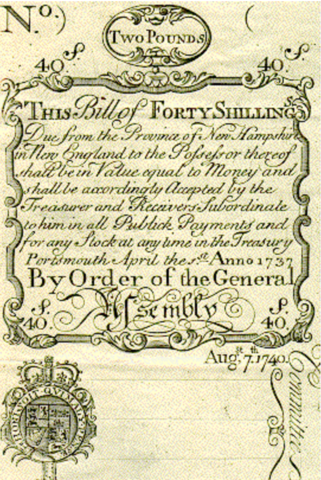 No.) (
TWO POUNDS
40s. 40s.
THIS Bill of FORTY SHILLINGS
Due from the Province of New Hampshire
in New England to the Possessor thereof
shall be in Value equal to Money and
shall be accordingly Accepted by the
Treasurer and Receivers Subordinate
to him in all Publick Payments and
for any Stock at any time in the Treasury
Portsmouth April the 1st. Anno 1737
By Order of the General
Assembly
40s. 40s.
Augst. 7th. 1740.
Committee
HONI SOIT QUI MAL Y PENSE